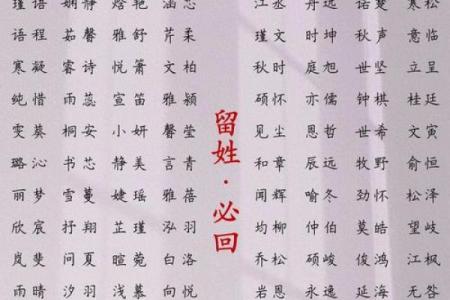 娴静 焓艳 江丞 丹远 诺楚 寒松
语程 茹馨 雅舒 芹柔 瑾文 时坤 秋声 意临
寒凝 睿诗 悦箫 文柏 秋时 庭旭 世坚 立呈
纯惜 雨蕊 宣笛 雅颖 硕怀 亦儒 钟棋 桂廷
雯葵 桐安 小妍 馨莹 见尘 恩哲 世希 文寅
璐沁 书芯 静美 言青 和章 辰远 牧野 俞恒
丽梦 雪蔓 婕瑶 雅蓓 闻辉 喻冬 劲怀 松泽
欣宸 抒翔 芷瑾 泓羽 均柳 仲伯 莫皓 望岐
岚斐 问夏 暄菀 白洛 乔松 硕峻 俊鸿 江枫
雨晴 汐羽 浅慕 向悦 岩恩 永逸 延海 无咎
留姓·必回